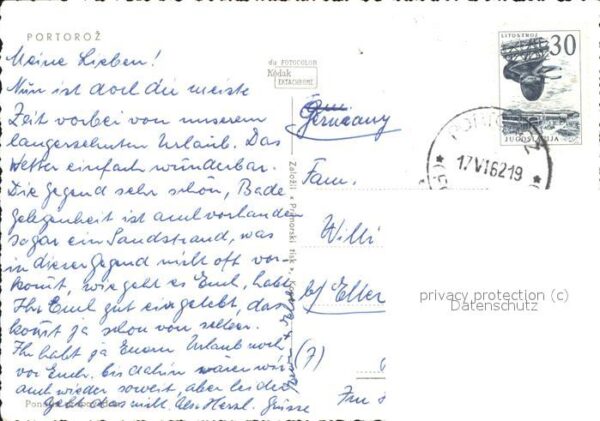 PORTOROŽ
Meine Lieben!
Nun ist doch die meiste
Zeit vorbei von unserem
langersehnten Urlaub. Das
Wetter einfach wunderbar.
Die Gegend sehr schön, Bade
gelegenheit ist auch vorhanden
sogar ein Sandstrand, was
in dieser Gegend nicht oft vor-
kommt, wie geht es Euch, habt
Ihr Euch gut eingelebt, das
kommt ja schon von selber.
Ihr habt ja Euern Urlaub noch
vor Euch. bis dahin wären wir
auch wieder soweit, aber leider
geht das nicht. Herzl. Grüsse
du FOTOCOLOR
Kodak
EKTACHROME
Založil
Primorski tisk
Germany
Fam.
Willi
b/ Elter
(7)
LITOSTROJ
30
JUGOSLAVIJA
17.VI.62.19
privacy protection (c)
Datenschutz